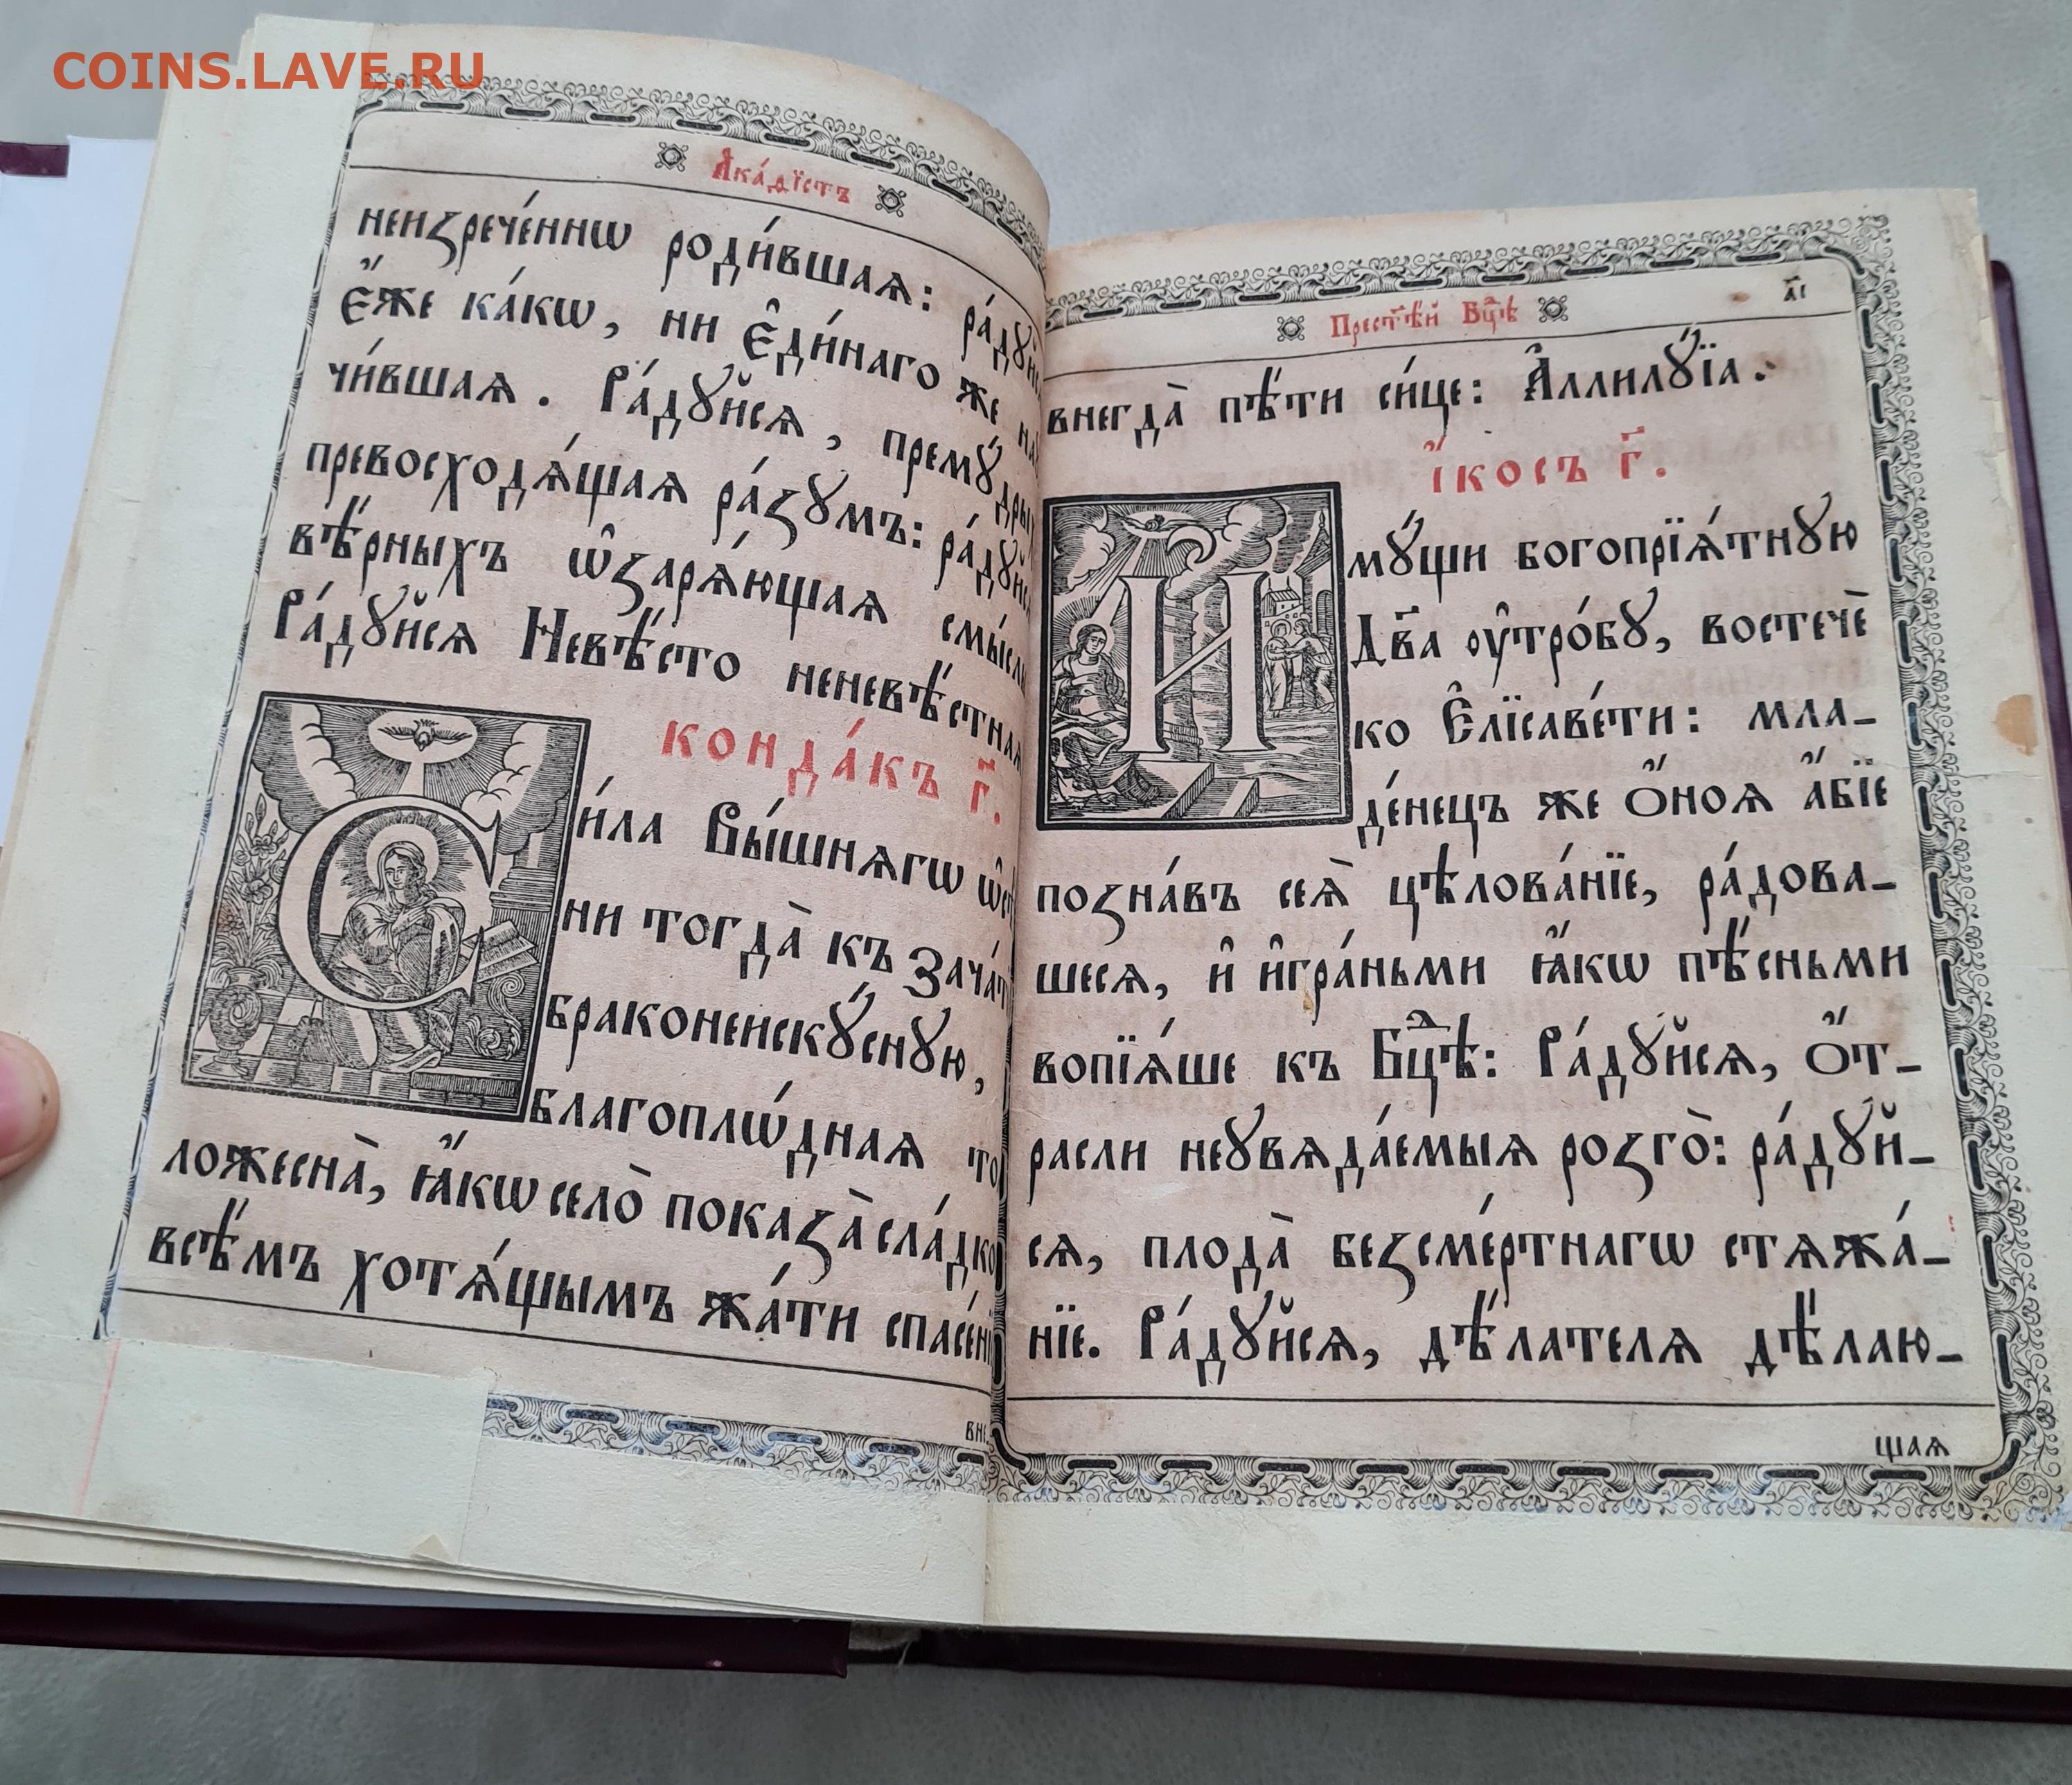 COINS.LAVE.RU
Ака́ѳїстъ
неизрече́ннѡ роди́вшаѧ: ра́дꙋйсѧ
Е҆́же ка́кѡ, ни Е҆ди́наго же на
чи́вшаѧ. Ра́дꙋйсѧ, премꙋ́дрых
превосходѧ́щаѧ ра́зꙋмъ: ра́дꙋйсѧ
вѣ́рныхъ ѡ҆заря́ющаѧ смы́слы
Ра́дꙋйсѧ Невѣ́сто неневѣ́стнаѧ
конда́къ г҃.
Си́ла Вы́шнѧгѡ ѡ҆сѣ
ни тогда̀ къ Зача́т
браконеискꙋ́снꙋю,
благоплѡ́днаѧ то
ложесна̀, ꙗ҆́кѡ село̀ показа̀ сла́дко
всѣ́мъ хотѧ́щымъ жа́ти спасе́нї
вне
Прест҃ѣ́й Бц҃ѣ
а҃і
внегда̀ пѣ́ти си́це: А҆ллилꙋ́їа.
І҆́косъ г҃.
Имꙋ́щи богопрїѧ́тнꙋю
Дв҃а оу҆тро́бꙋ, востечѐ
ко Е҆лїсаве́ти: мла-
де́нецъ же Ѻ҆́ноѧ а҆́бїе
позна́въ сеѧ̀ цѣлова́нїе, ра́дова-
шесѧ, и҆ и҆гра́ньми ꙗ҆́кѡ пѣ́сньми
вопїѧ́ше къ Бц҃ѣ: Ра́дꙋйсѧ, Ѻ҆́т-
расли неꙋвѧда́емыѧ розго̀: ра́дꙋй-
сѧ, плода̀ безсме́ртнагѡ стѧжа́-
нїе. Ра́дꙋйсѧ, дѣ́лателѧ дѣ́лаю-
щаѧ